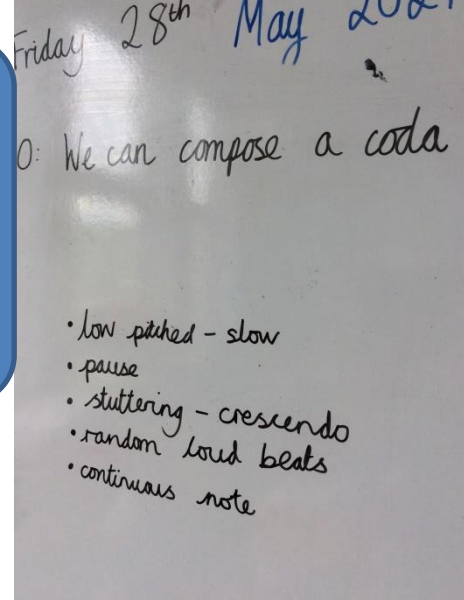 Friday 28th May 2021
O: We can compose a coda
• low pitched – slow
• pause
• stuttering – crescendo
• random loud beats
• continuous note